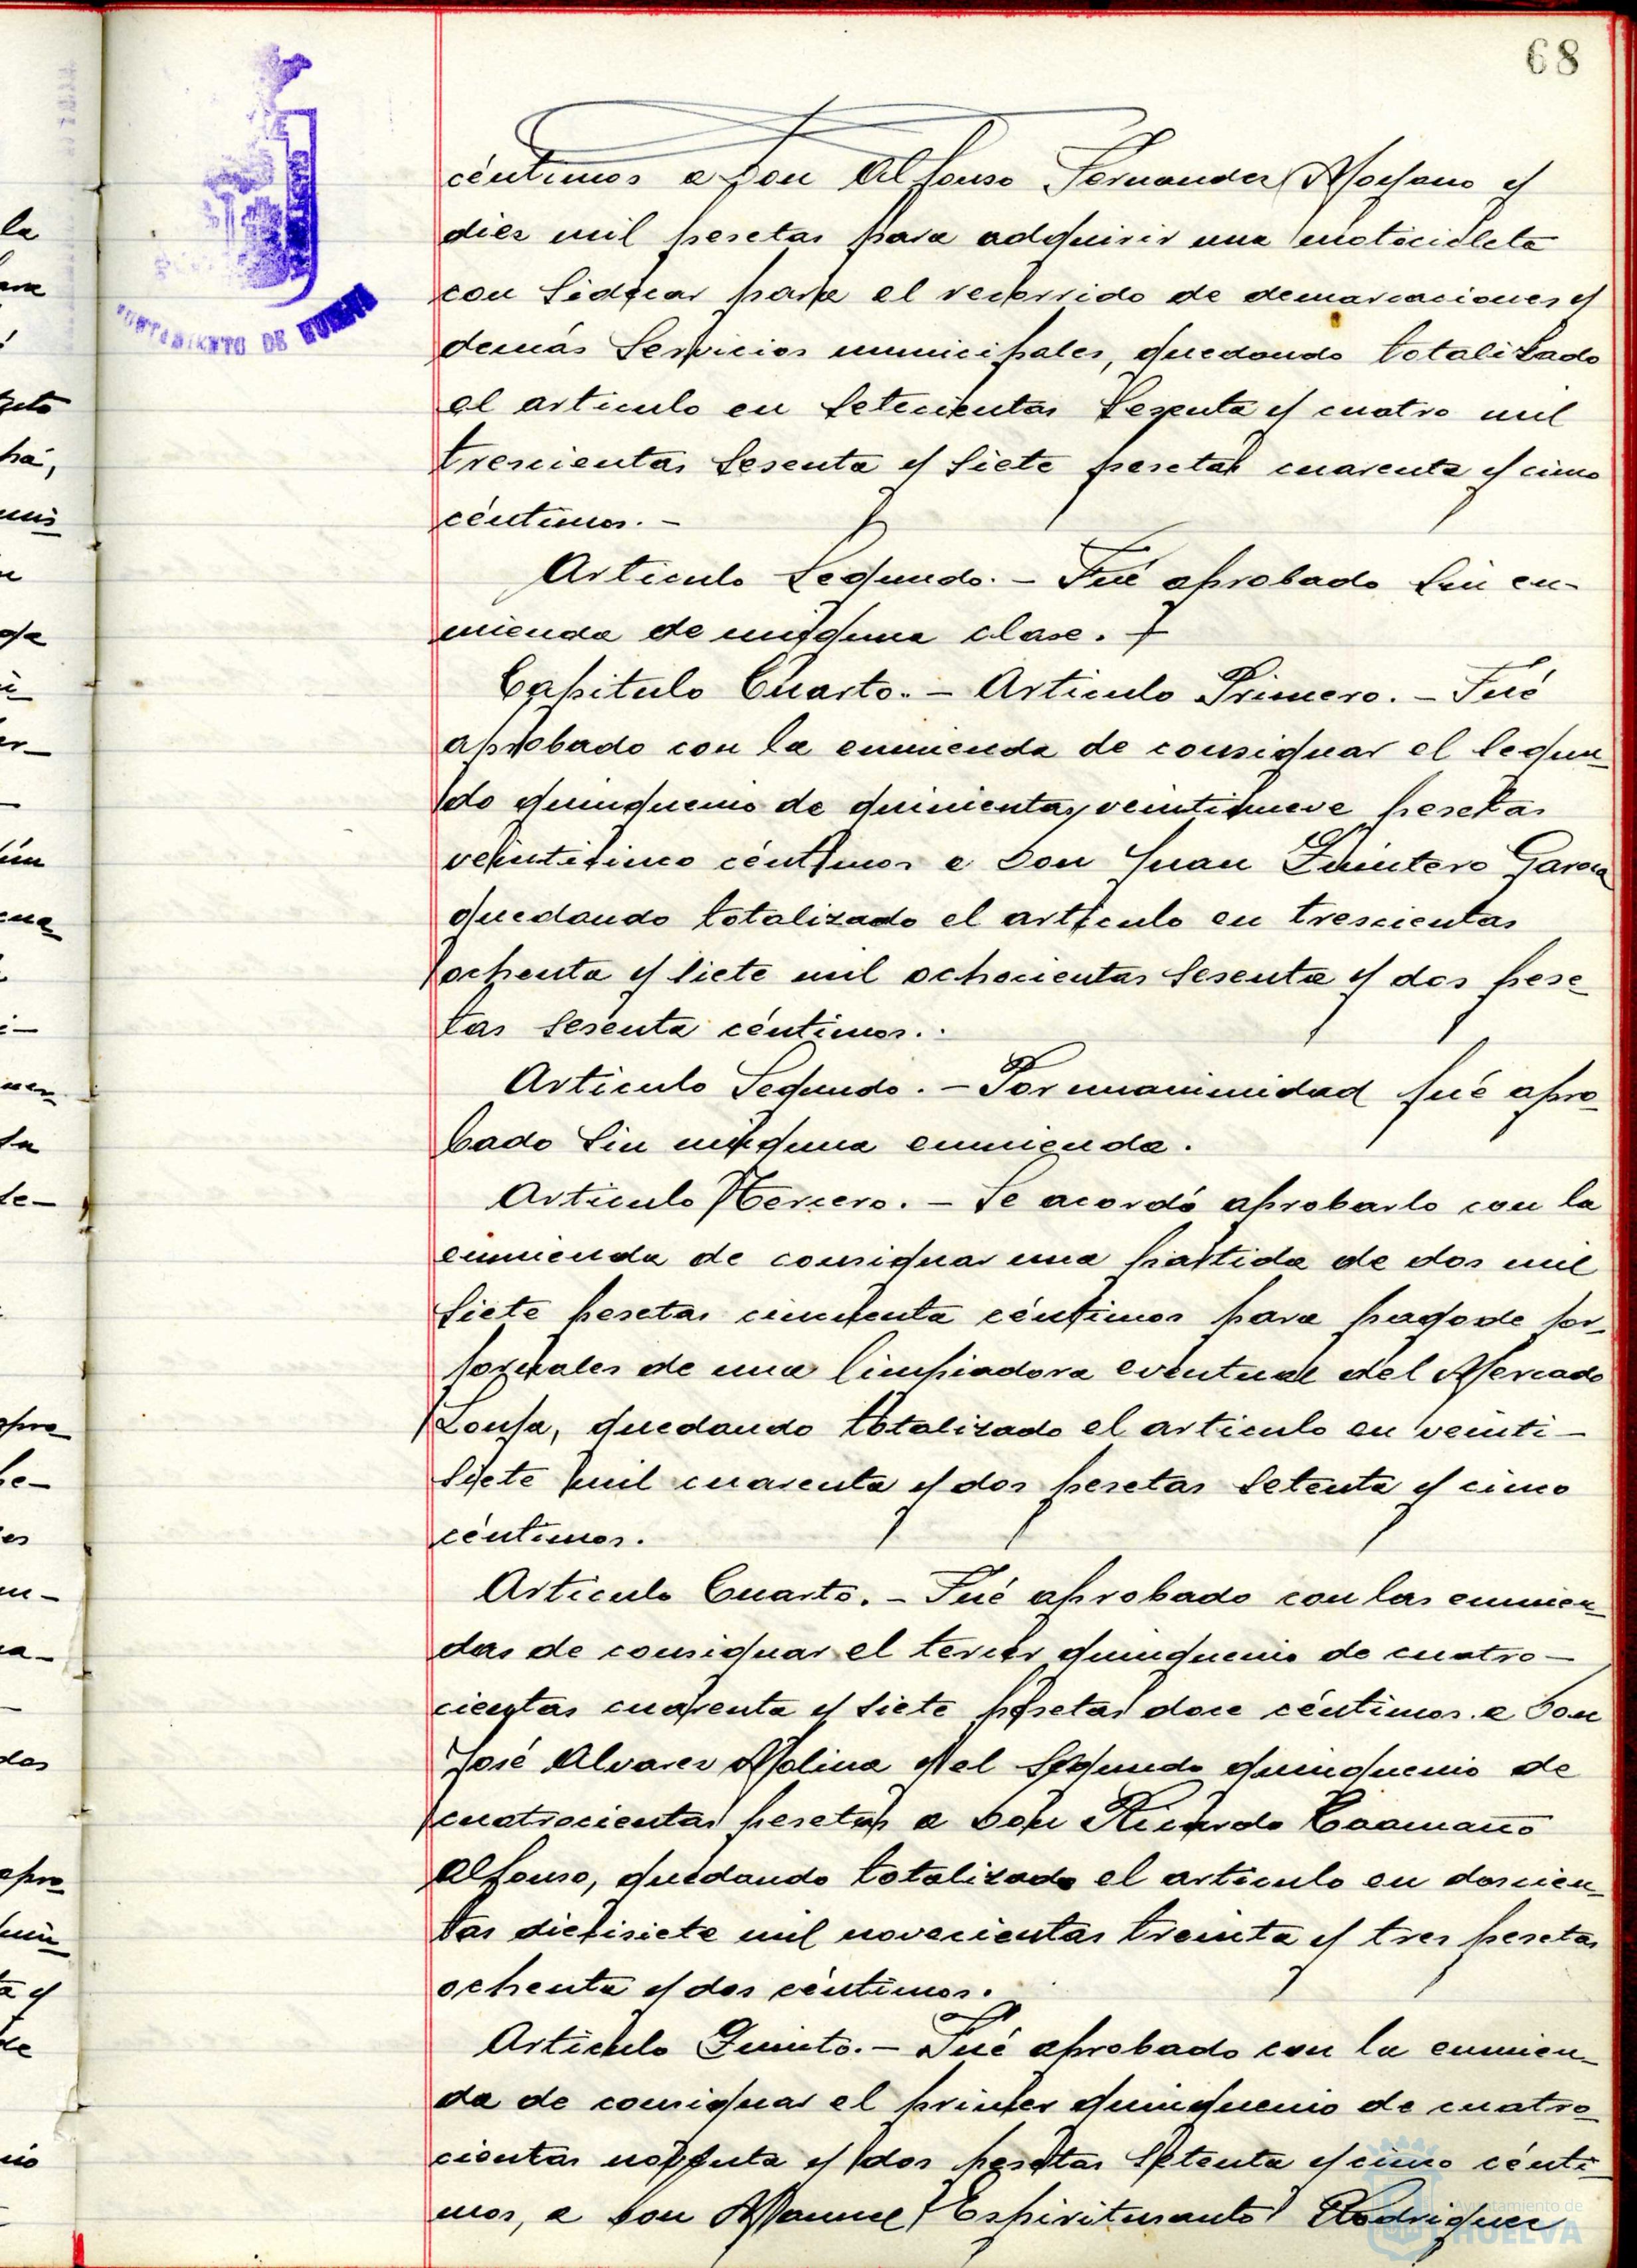 68
céntimos a Don Alfonso Fernandez Moyano y
diez mil pesetas para adquirir una motocicleta
con Sidecar para el recorrido de demarcaciones y
demás Servicios municipales, quedando totalizado
el articulo en Setecientas Sesenta y cuatro mil
trescientas Sesenta y Siete pesetas cuarenta y cinco
céntimos. -
Articulo Segundo. - Fué aprobado Sin en-
mienda de ninguna clase.
Capitulo Cuarto. - Articulo Primero. - Fué
aprobado con la enmienda de consignar el Segun-
do quinquenio de quinientas veintinueve pesetas
veinticinco céntimos a Don Juan Quintero Garcia
quedando totalizado el articulo en trescientas
ochenta y siete mil ochocientas Sesenta y dos pese-
tas Sesenta céntimos.
Articulo Segundo. - Por unanimidad fué apro-
bado Sin ninguna enmienda.
Articulo Tercero. - Se acordó aprobarlo con la
enmienda de consignar una partida de dos mil
Siete pesetas cincuenta céntimos para pago de jor-
jornales de una limpiadora eventual del Mercado
Lonja, quedando totalizado el articulo en veinti-
Siete mil cuarenta y dos pesetas Setenta y cinco
céntimos.
Articulo Cuarto. - Fué aprobado con las enmien-
das de consignar el tercer quinquenio de cuatro-
cientas cuarenta y Siete pesetas doce céntimos a Don
José Alvarez Molina y el Segundo quinquenio de
cuatrocientas pesetas a Don Ricardo Caamaño
Alfonso, quedando totalizado el articulo en doscien-
tas diecisiete mil novecientas treinta y tres pesetas
ochenta y dos céntimos.
Articulo Quinto. - Fué aprobado con la enmien-
da de consignar el primer quinquenio de cuatro-
cientas noventa y dos pesetas Setenta y cinco cénti-
mos, a Don Manuel Espiritusanto Rodriguez
AYUNTAMIENTO DE HUELVA
Ayuntamiento de
HUELVA